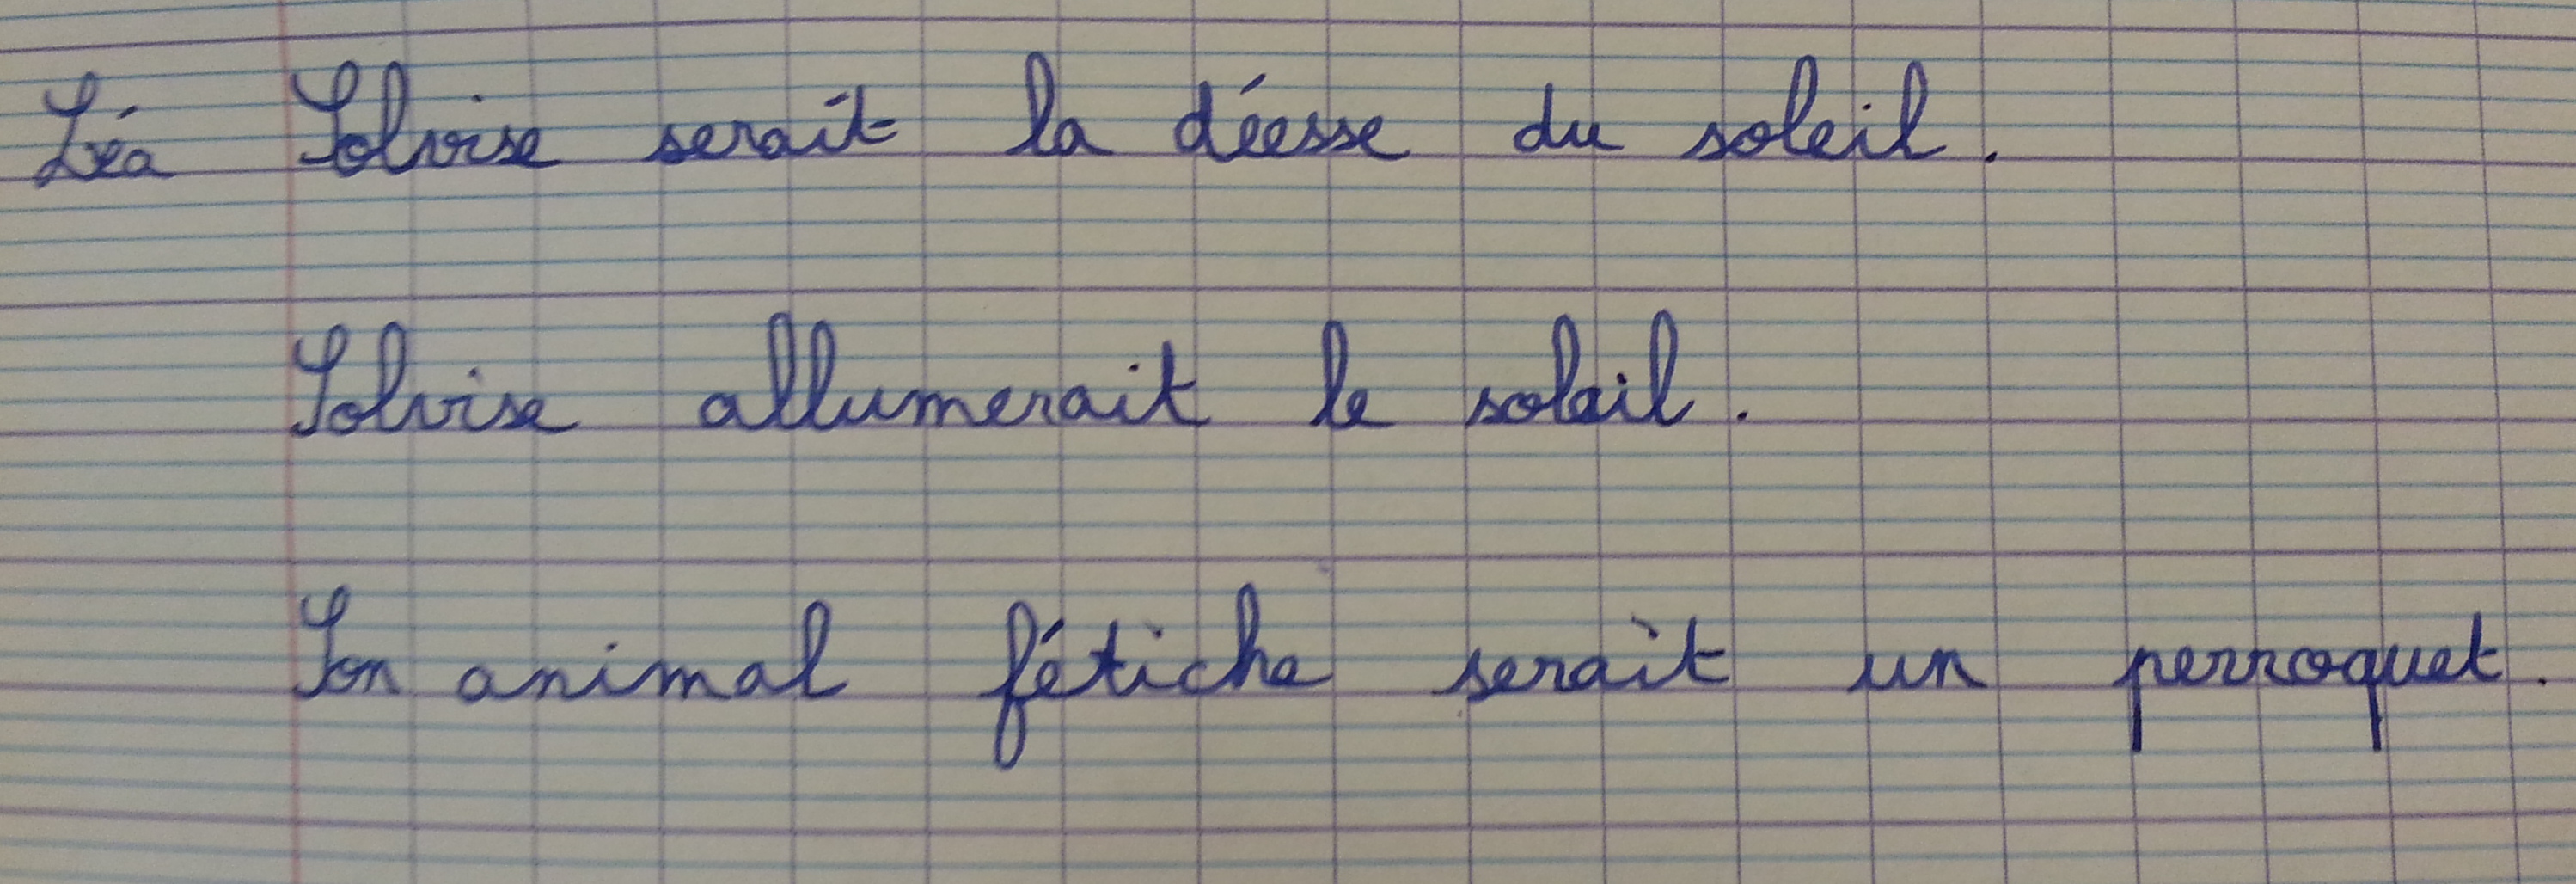 Léa Solvise serait la déesse du soleil.
Solvise allumerait le soleil.
Son animal fétiche serait un perroquet.